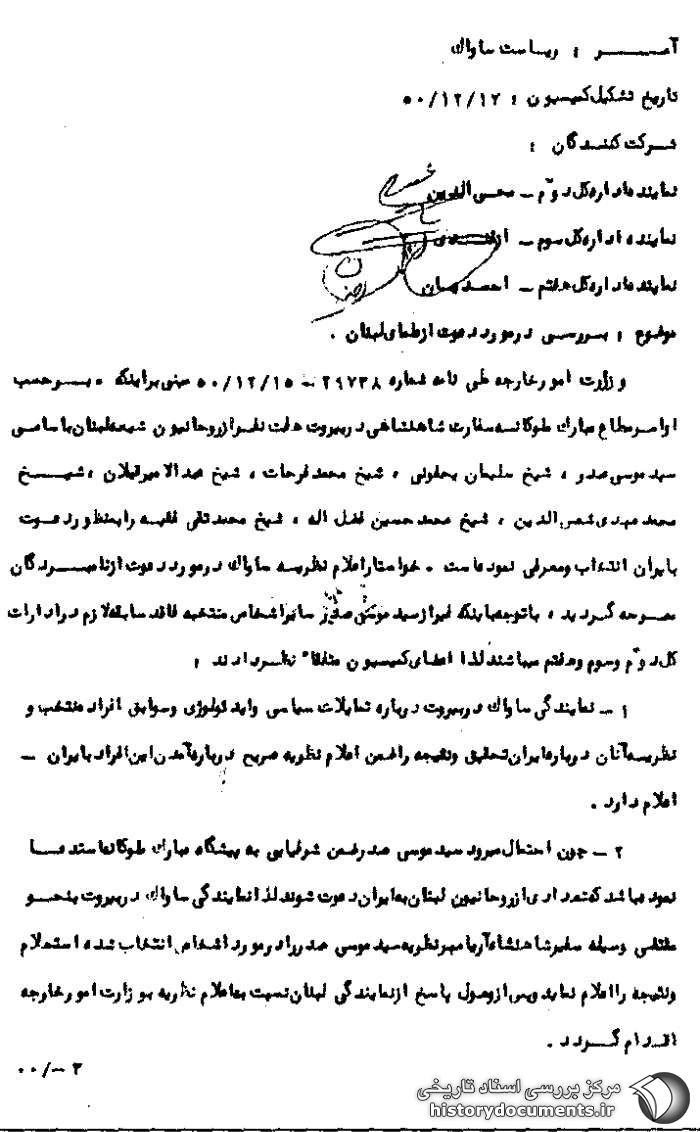 آمـــر : ریـاست ساواک
تاریخ تشکیل کمیسیون : ۵۰/۱۲/۱۷
شـرکت کنـنـدگان :
نماینده اداره کل دوّم ـ محسی الدین
نماینده اداره کل سوم ـ
نماینده اداره کل هفتم ـ احمد
موضوع : بـررسـی در مورد دعوت از علمای لبنان .
وزارت امور خارجه طی نامه شماره ۲۹۷۳۸ ـ ۵۰/۱۲/۱۵ مبنی بر اینکه ، بـرحسب
اوامر مطاع مبارک ملوکانه سفارت شاهنشاهی در بیروت هفت نفر از روحانیون شیعه لبنان با سامی
سید موسی صدر ، شیخ سلیمان یحفوفی ، شیخ محمد فرحات ، شیخ عبدالامیر قبلان ، شیـــخ
محمد مهدی شمس الدین ، شیخ محمد حسین فضل اله ، شیخ محمد تقی فقیـه را بمنظور دعـوت
بایران انتخاب و معرفی نموده است . خواستار اعلام نظریـه ساواک در مورد دعوت از نامبـــردگان
مصوحه گـردید ، با توجه باینکه غیر از سید موسی صدر سایر اشخاص منتخبه فاقد سابقه لازم در ادارات
کل دوّم وسوم وهفتم میباشند لذا اعضای کمیسیـون متفقاً نظـر دادنـد :
۱ ـ نمایندگی ساواک در بیروت درباره تمایلات سیاسی وایدئولوژی وسوابق افراد منتخب و
نظریـه آنان درباره ایران تحقیق ونتیجه را ضمن اعلام نظریه صریح درباره آمدن این افراد بایران ـ
اعلام دارد .
۲ ـ چون احتمال میرود سید موسی صدر ضمن شرفیابی به پیشگاه مبارک ملوکانه استدعـــا
نموده باشد که تعدادی از روحانیون لبنان به ایران دعوت شوند لذا نمایندگی ساواک در بیروت بنحـو
مقتضی وسیله سفیر شاهنشاه آریامهر نظریه سید موسی صدر را در مورد اشخاص انتخاب شده استعلام
ونتیجه را اعلام نماید وپس از وصول پاسخ از نمایندگی لبنان نسبت به اعلام نظریه به وزارت امور خارجه
اقـدام گـردد .
۰۰/ـ ۳
مرکز بررسی اسناد تاریخی
historydocuments.ir